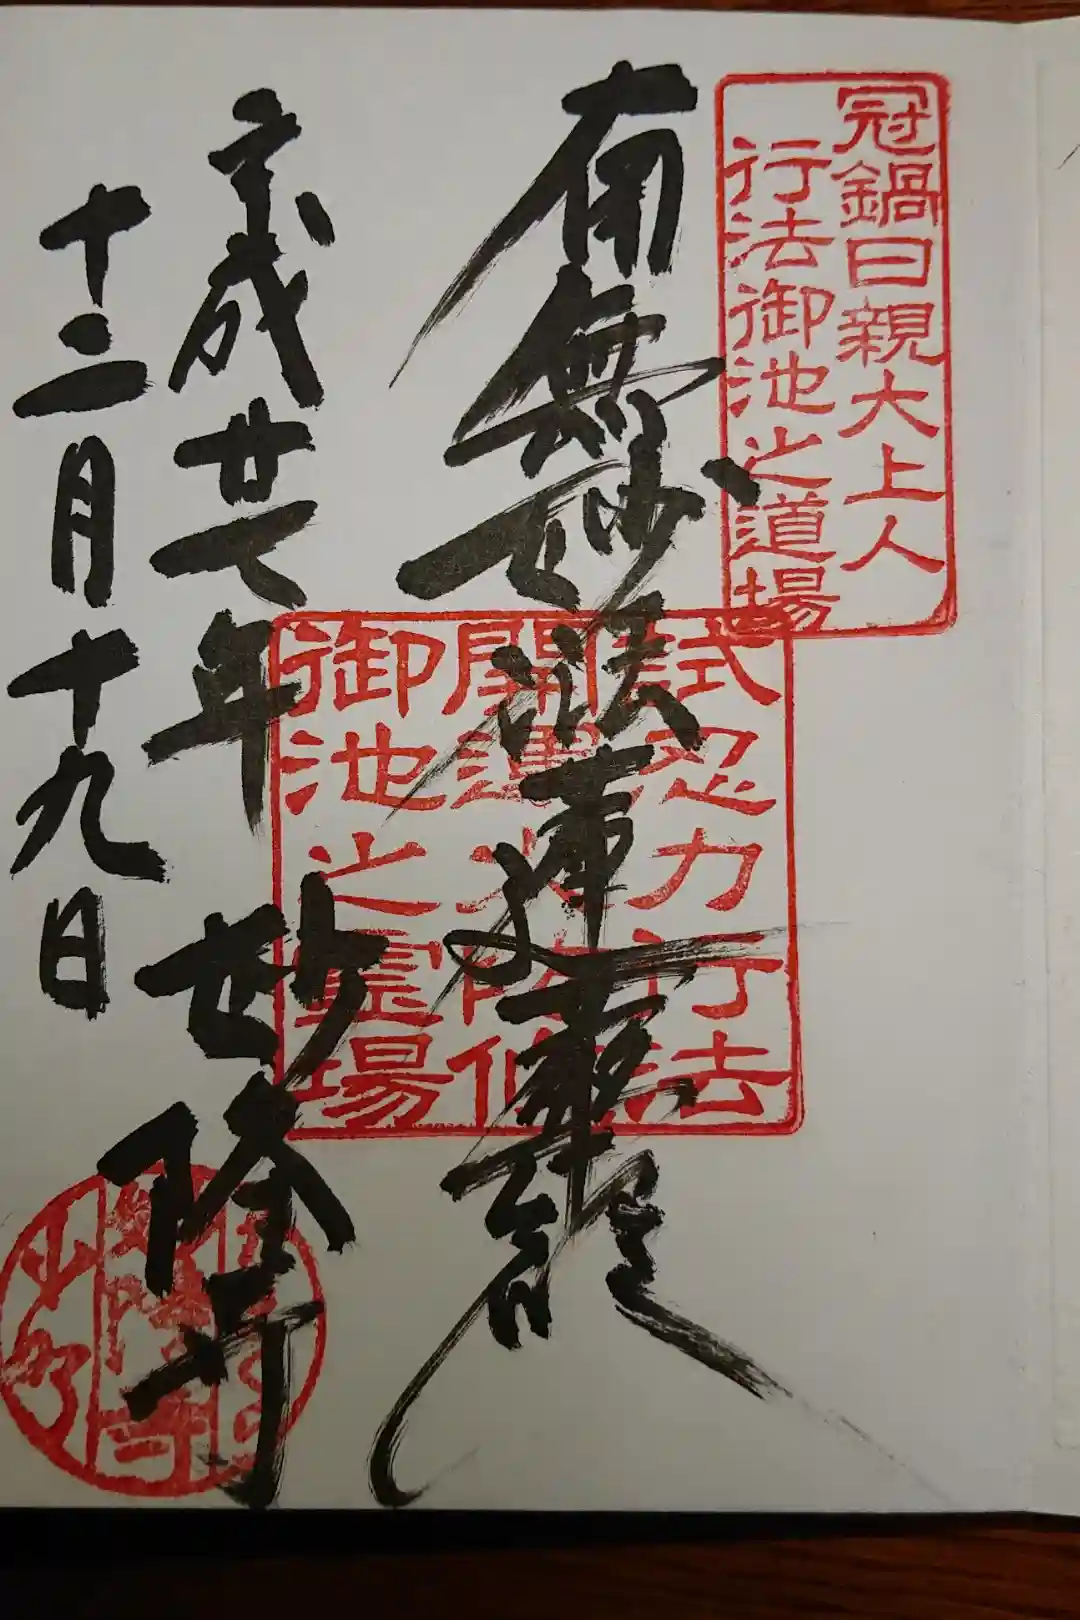 冠鍋日親大上人
行法御池之道場
南無妙法蓮華経
試忍力行法
開運
御池之霊場
平成廿七年 妙隆寺
十二月十九日
小町